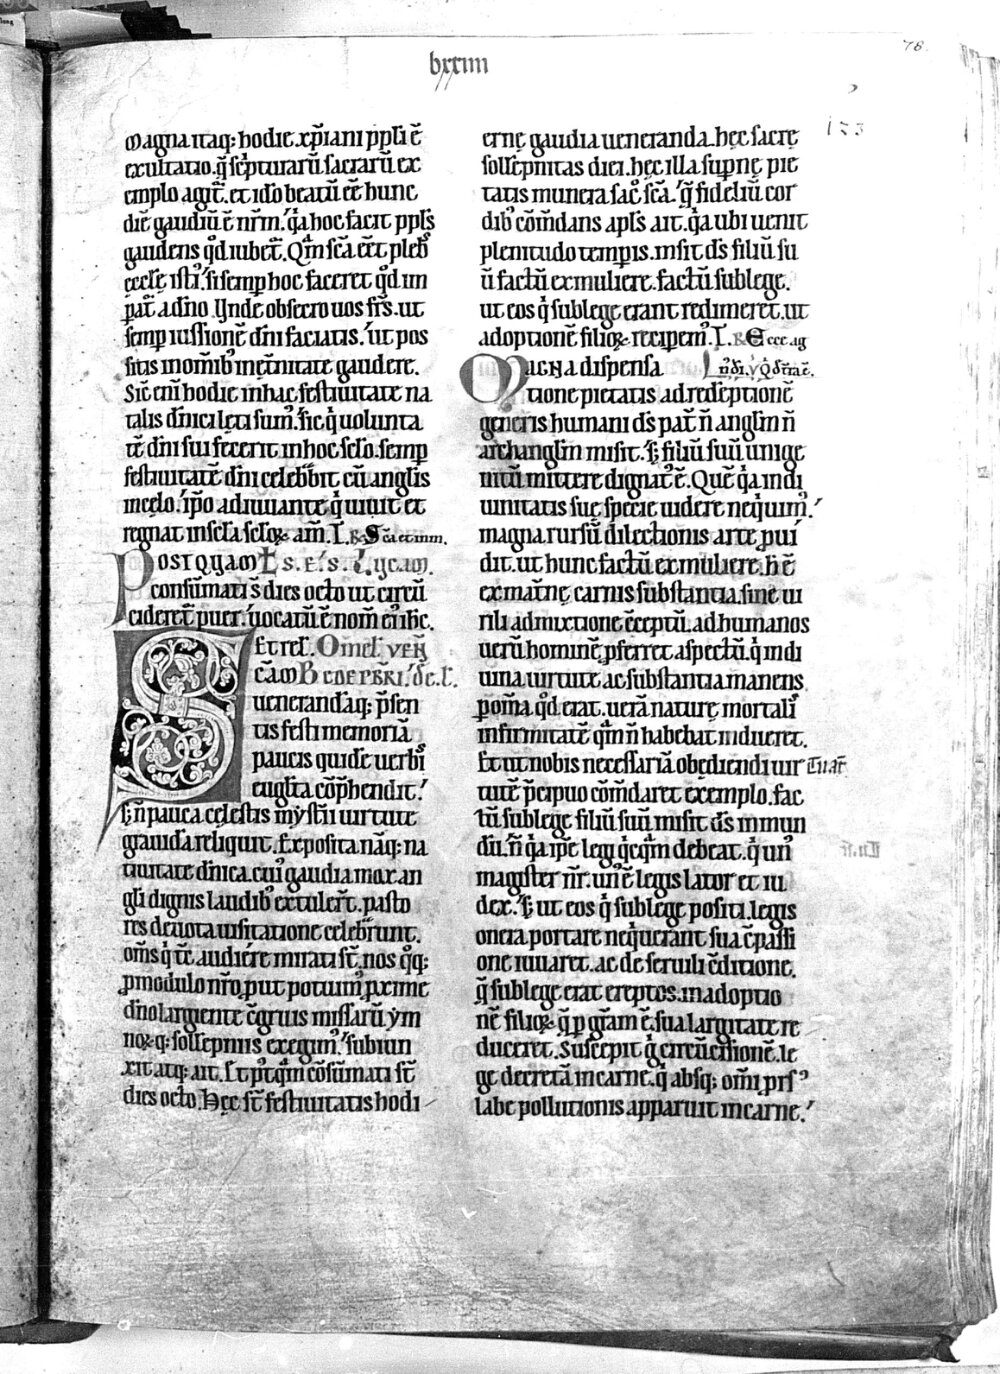 78.
lxxiiii
173
Magna itaq; hodie xp̄iani pp̄li ē
exultatio. q̄ sc̄pturarū sacrarū ex
emplo agit̄. et ido beatū ēē hunc
diē gaudiū ē nr̄m. q̓a hoc facit ppl̄s
gaudens qd̓ iubet̄. Qm̄ sc̄a eēt pleb̓
eccl̄ę isti. si semp hoc faceret qd̓ im
pat̄ a dn̄o. Vnde obsecro uos fr̄s. ut
semp iussionē dn̄i faciatis. ut pos
sitis in om̄ib̓ in et̄nitate gaudere.
Sic̄ eni hodie in hac festiuitate na
talis dn̄ici lęti sum̓. sic q̓ uolunta
tē dn̄i sui fecerit in hoc sc̄lo. semp
festiuitatē dn̄i celebb̄it cū anglis
in cęlo. ip̄o adiuuante q̓ uiuit et
regnat in sc̄la sc̄loꝝ am̄.
Postquam
consūmati s̄ dies octo ut circū
cideret̄ puer. uocatū ē nom̄ ei̓ ihc̄.
Et rel̄. Omel̄. ven̄
Bede pbr̄i. de
uenerandaq; p̄sen
tis festi memoriā
paucis quidē uerbis
euglista cōp̄hendit.
s; n̄ pauca cęlestis mẏsterii uirtute
grauida reliquit. Exposita nāq; na
tiuitate dn̄ica. cui̓ gaudia mox an
gli dignis laudib̓ extuler̄t. pasto
res deuota uisitatione celebrunt.
om̄s q̓ tc̄ audiere mirati st̄. nos q̓q;
p modulo nr̄o. put potuim̓ p xime
dn̄o largiente c̄gruis missarū ẏm
noꝝq; sollēpniis exegim̓. subiun
xit atq; ait. Et p̓tq̄m cōsūmati st̄
dies octo. Hęc st̄ festiuitatis hodi
ernę gaudia ueneranda. hęc sacrę
sollēpnitas diei. hęc illa supnę pie
tatis munera sac̄ sc̄a. q̄ fideliū cor
dib̓ cōm̄dans apl̄s ait. q̓a ubi uenit
plenitudo tempis. misit ds̄ filiū su
ū factū ex muliere. factū sub lege.
ut eos q̓ sub lege erant redimeret. ut
adoptionē filioꝝ recipem̓.
Magna dispensa
tione pietatis ad redēptionē
generis humani ds̄ pat̄ n̄ anglm n̄
archanglm misit. s; filiū suū unige
nitū mittere dignat̓ ē. Quē q̓a in di
uinitatis suę specie uidere neq̓uim̓.
magna rursū dilectionis arte pui
dit. ut hunc factū ex muliere. h̄ ē
ex mat̄nę carnis substantia. sine ui
rili admixtione c̄ceptū. ad humanos
uerū hominē pferret aspectū. q̓ in di
uina uirtute ac substantia manens
p om̄a qd̓ erat. uerā naturę mortalis
infirmitatē qm̄ n̄ habebat indueret.
Et ut nobis necessariā obędiendi uir
tutē p̄cipuo cōm̄daret exemplo. fac
tū sub lege filiū suū misit ds̄ in mun
dū. n̄ q̓a ip̄e legi q̓cq̄m debeat. q̓ un̓
magister nr̄. un̓ ē legis lator et iu
dex. s; ut eos q̓ sub lege positi. legis
onera portare neq̓uerant sua c̄passi
one iuuaret. ac de seruili c̄ditione.
q̄ sub lege erat ereptos. in adoptio
nē filioꝝ. q̄ p gr̄am ē. sua largitate re
duceret. Suscepit ḡ circūcisionē. le
ge decretā in carne. q̓ absq; om̄i prs̓
labe pollutionis apparuit in carne.